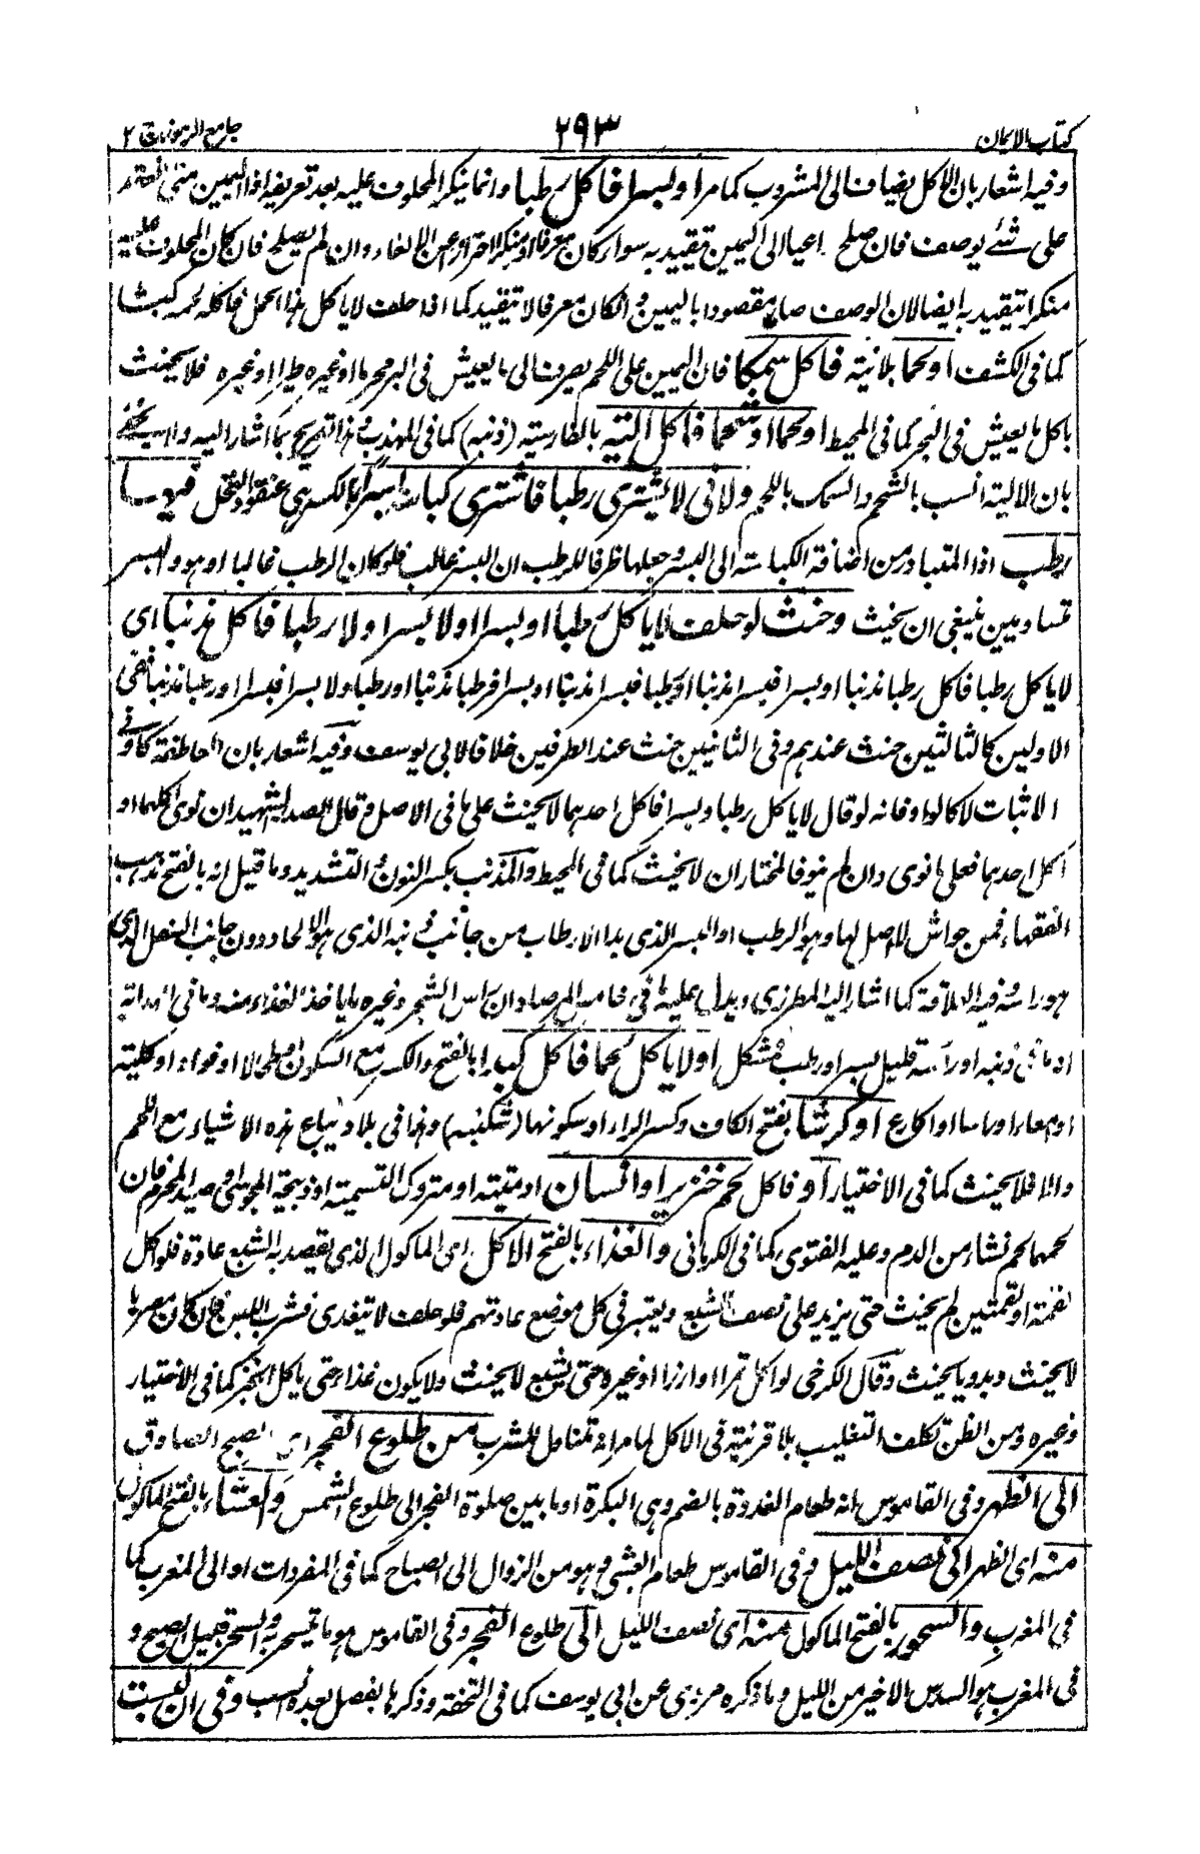 كتاب الايمان ٢٩٣ جامع الرموز ج ٢
وفيه اشعار بان الاكل يضاف الى المشروب كما مر او بسرا فاكل رطبا وانما ينكر المحلوف عليه بعد تعريفه اذ اليمين متى انعقد
على شئ يوصف فان صلح داعيا الى اليمين تقيد به سواء كان معرفا او منكرا احترازا عن الالغاء وان لم يصلح فان كان المحلوف عليه
منكرا تقيد به ايضا لان الوصف صار مقصودا باليمين وان كان معرفا لا تقيد كما اذا حلف لا ياكل هذا الحمل فاكله لحمه كبشا
كما فى الكشف او لحما بلا نية فاكل سمكا فان اليمين على اللحم يصرف الى ما يعيش فى البر محرما او غيره طيرا او غيره فلا يحنث
باكل ما يعيش فى البحر كما فى المحيط او لحما او شحما فاكل الية بالفارسية (دنبه) كما فى المهذب وهذا تصريح بما اشار اليه ولا يخفى
بان الالية انسب بالشحم والسمك باللحم ولا فى لا يشترى رطبا فاشترى كباسة بسر بالكسر هى عنقود النخل فيها
رطب اذ المتبادر من اضافة الكباسة الى البسر وجعلها ظرفا للرطب ان البسر غالب فلو كان الرطب غالبا او هو والبسر
متساويين ينبغى ان يحنث وحنث لو حلف لا ياكل رطبا او بسرا او لا بسرا ولا رطبا فاكل مذنبا اى
لا ياكل رطبا فاكل رطبا مذنبا او بسرا فبسرا مذنبا او رطبا فبسرا مذنبا او بسرا فرطبا مذنبا او رطبا ولا بسرا فبسرا او رطبا مذنبا ففى
الاولين كالثالثين حنث عندهم وفى الثانيين حنث عند الطرفين خلافا لابى يوسف وفيه اشعار بان العاطفة كاو فى
الاثبات لا كالواو فانه لو قال لا ياكل رطبا وبسرا فاكل احدهما لا يحنث على ما فى الاصل وقال الصدر الشهيد ان نوى اكلهما او
اكل احدهما فعلى ما نوى وان لم ينو فالمختار ان لا يحنث كما فى المحيط والمذنب بكسر النون والتشديد وما قيل انه بالفتح مذهب
الفقهاء فمن حواش لا اصل لها وهو الرطب او البسر الذى بدا الارطاب من جانب ذنبه الذى هو الحاد دون جانب المتصل الذى
هو راسه فيه العلاقة كما اشار اليه المطرزى ويدل عليه ما فى المرصاد ان راس الشجر وغيره ما ياخذ الغذاء منه وما فى الهداية
ان ما فى ذنبه او راسه قليل بسر او رطب مشكل او لا ياكل لحما فاكل كبدا بالفتح والكسر مع السكون او طحالا او فؤادا او كلية
او امعاء او راسا او اكارع او كرشا بفتح الكاف وكسر الراء او سكونها (شكنبه) وهذا فى بلاد تباع هذه الاشياء مع اللحم
والا فلا يحنث كما فى الاختيار او فاكل لحم خنزير او انسان او ميتة او متروك التسمية او ذبيحة المجوسى او صيد المحرم فان
لحمها لحم نشا من الدم وعليه الفتوى كما فى الكرمانى والغذاء بالفتح الاكل اى الماكول الذى يقصد به الشبع عادة فلو اكل
لقمة او لقمتين لم يحنث حتى يزيد على نصف الشبع ويعتبر فى كل موضع عادتهم فلو حلف لا يتغدى فشرب اللبن فان كان مصريا
لا يحنث وبدويا يحنث وقال الكرخى لو اكل تمرا او ارزا او غيره حتى يشبع لا يحنث ولا يكون غذاء حتى ياكل الخبز كما فى الاختيار
وغيره ومن الظن تكلف التغليب بلا قرينة فى الاكل لما مر انه متناول للشرب من طلوع الفجر اى الصبح الصادق
الى الظهر وفى القاموس انه طعام الغدوة بالضم وهى البكرة او ما بين صلوة الفجر الى طلوع الشمس والعشاء بالفتح الماكول
منه اى الظهر الى نصف الليل وفى القاموس طعام العشى وهو من الزوال الى الصباح كما فى المفردات او الى المغرب كما
فى المغرب والسحور بالفتح الماكول منه اى نصف الليل الى طلوع الفجر وفى القاموس هو ما يتسحر به والسحر قبيل الصبح و
فى المغرب هو السدس الاخير من الليل وما ذكره مروى عن ابى يوسف كما فى التحفة وذكرها بفصل بعده انسب وفى ان لبست